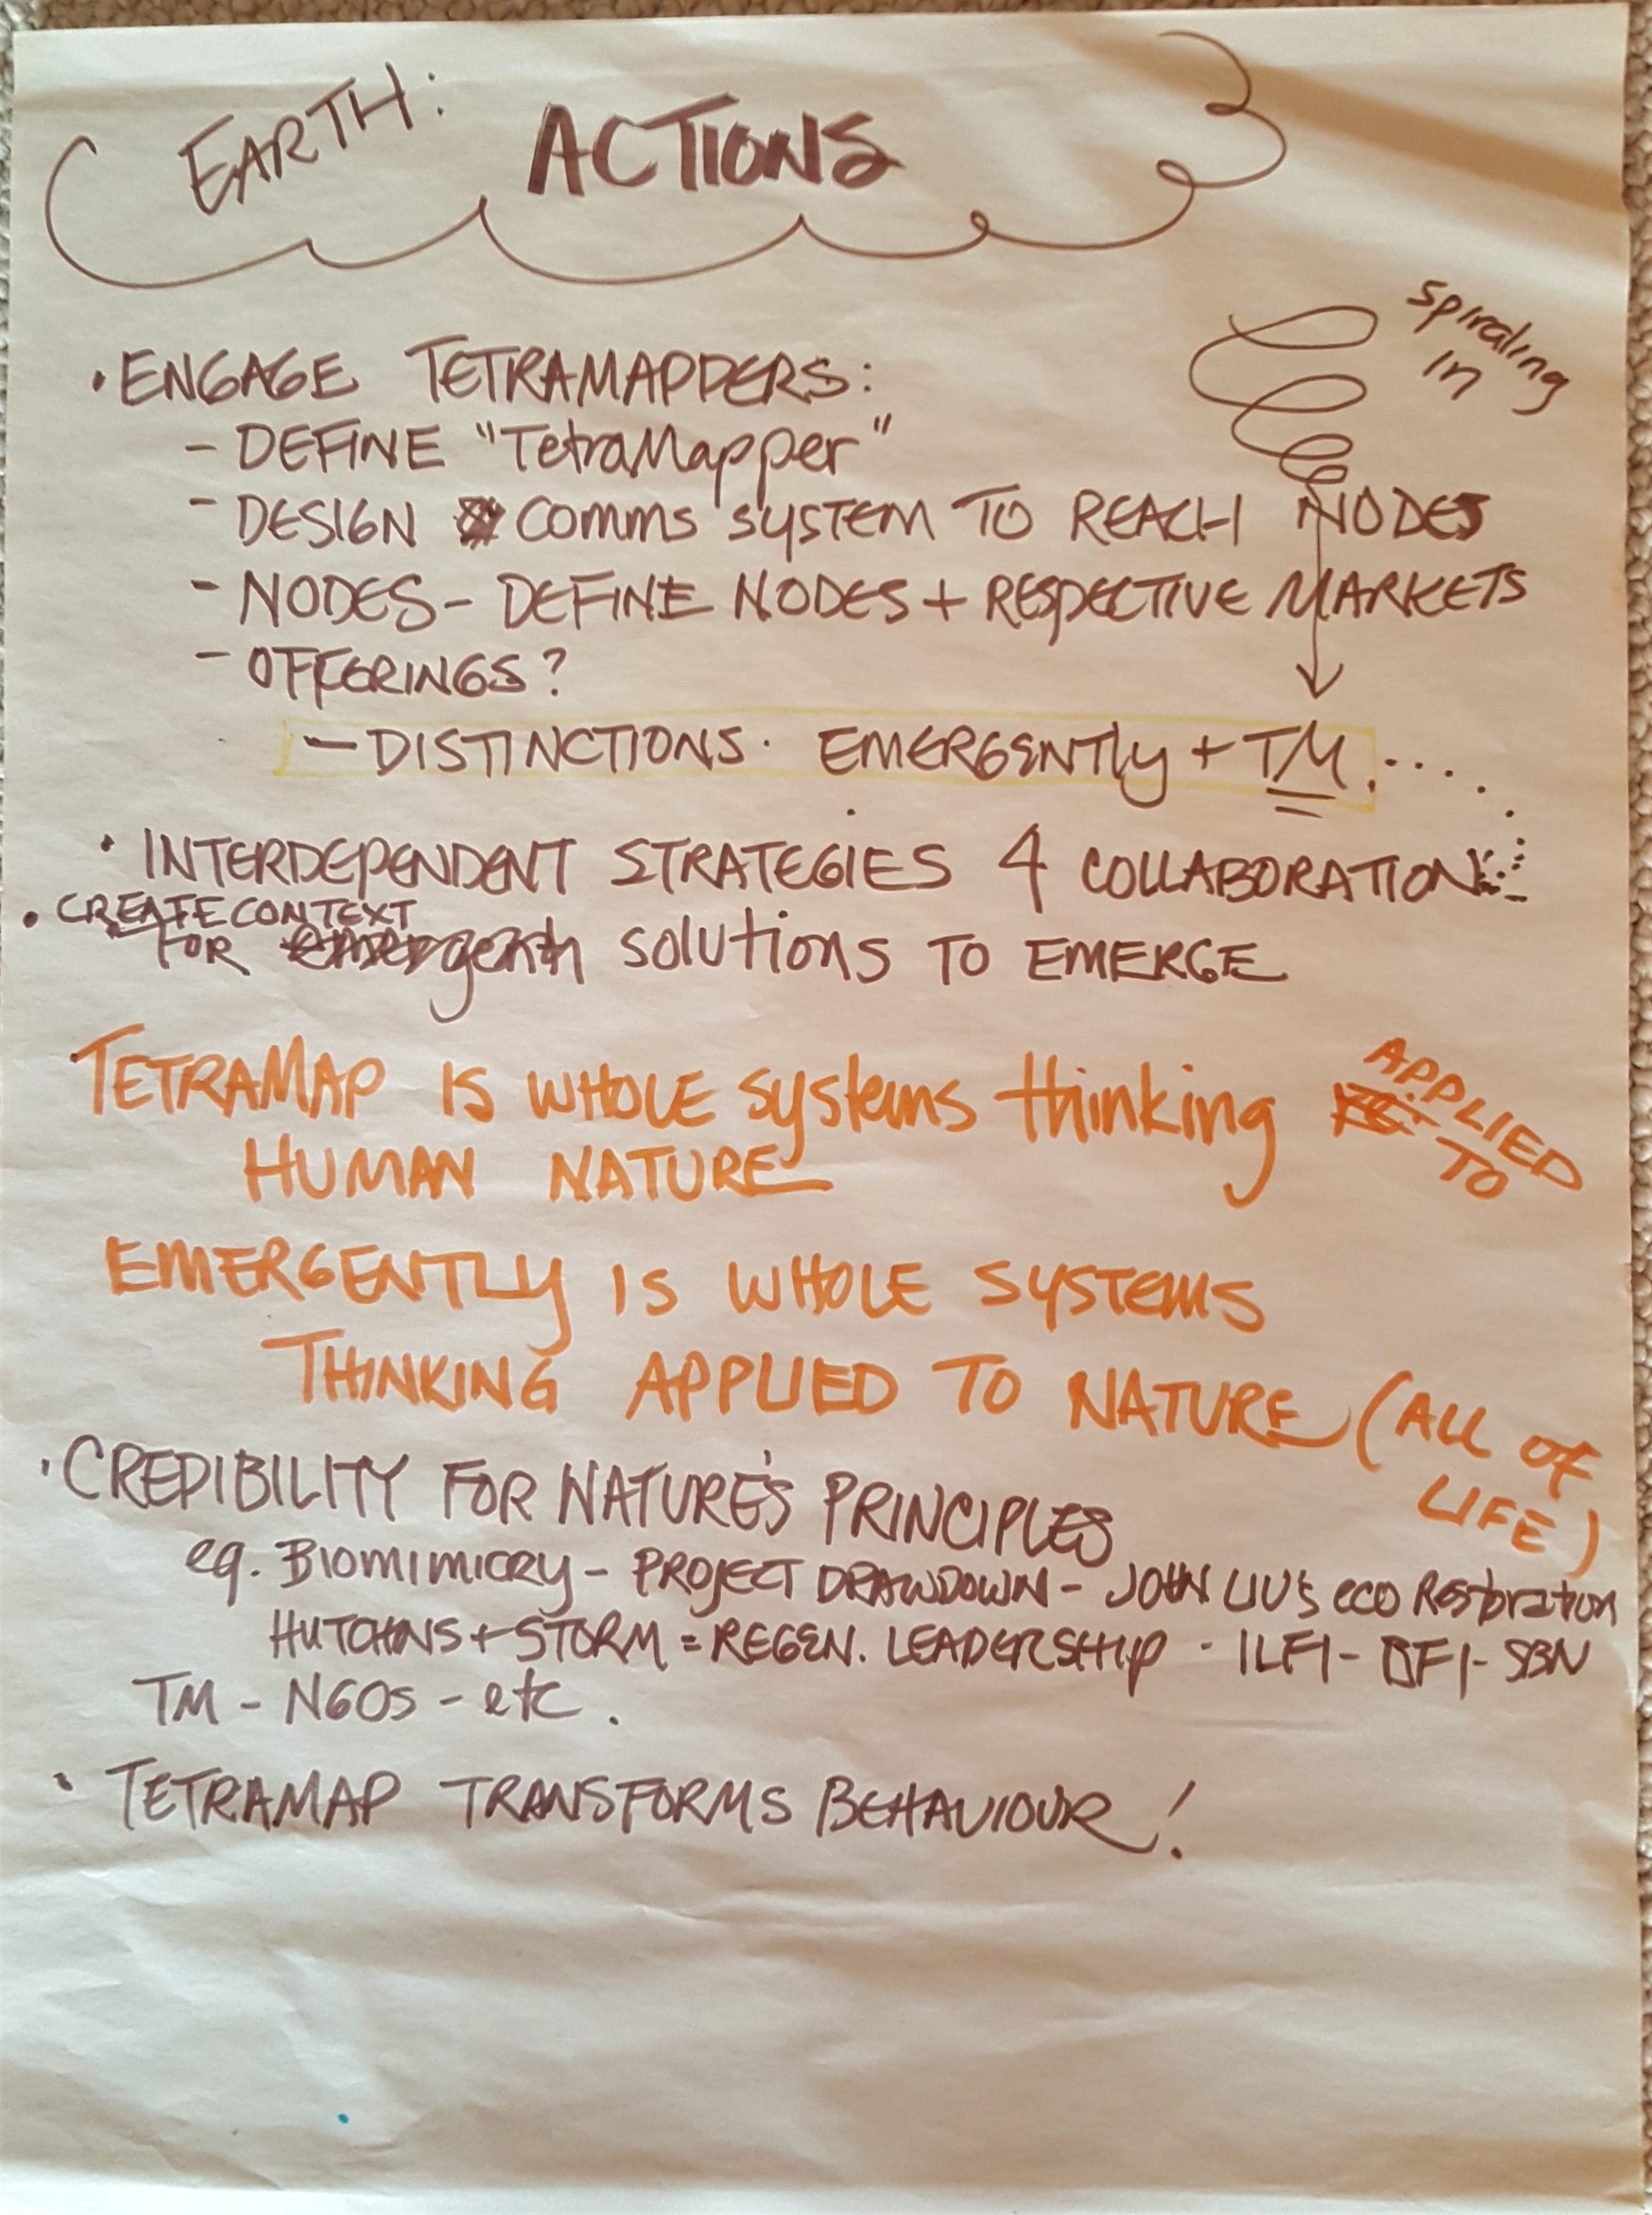 EARTH: ACTIONS
spiraling in
• ENGAGE TETRAMAPPERS:
- DEFINE "TetraMapper"
- DESIGN Comms SYSTEM TO REACH NODES
- NODES - DEFINE NODES + RESPECTIVE MARKETS
- OFFERINGS?
- DISTINCTIONS. EMERGENTLY + TM.....
• INTERDEPENDENT STRATEGIES 4 COLLABORATION
• CREATE CONTEXT
FOR solutions TO EMERGE
TETRAMAP IS WHOLE systems thinking APPLIED TO
HUMAN NATURE
EMERGENTLY IS WHOLE SYSTEMS
THINKING APPLIED TO NATURE (ALL OF
LIFE)
• CREDIBILITY FOR NATURE'S PRINCIPLES
eg. BIOMIMICRY - PROJECT DRAWDOWN - JOHN LIU's eco Restoration
HUTCHINS + STORM = REGEN. LEADERSHIP - ILFI - BFI - SBN
TM - NGOs - etc.
• TETRAMAP TRANSFORMS BEHAVIOUR!